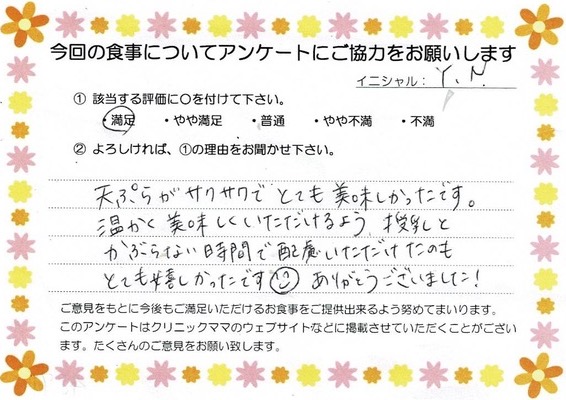 今回の食事についてアンケートにご協力をお願いします
イニシャル： Y.N.
① 該当する評価に○を付けて下さい。
・満足 ・やや満足 ・普通 ・やや不満 ・不満
② よろしければ、①の理由をお聞かせ下さい。
天ぷらがサクサクでとても美味しかったです。
温かく美味しくいただけるよう、授乳と
かぶらない時間で配慮いただけたのも
とても嬉しかったです☺ ありがとうございました！
ご意見をもとに今後もご満足いただけるお食事をご提供出来るよう努めてまいります。
このアンケートはクリニックママのウェブサイトなどに掲載させていただくことがござい
ます。たくさんのご意見をお願い致します。